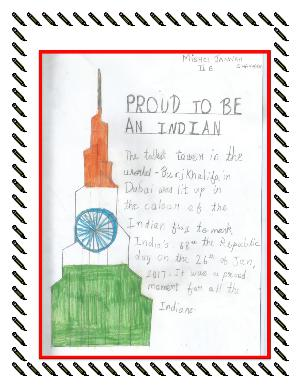 II B
PROUD TO BE
AN INDIAN
The tallest tower in the
world - Burj Khalifa, in
Dubai was lit up in
the colour of the
Indian flag to mark
India's 68th the Republic
day on the 26th of Jan,
2017. It was a proud
moment for all the
Indians